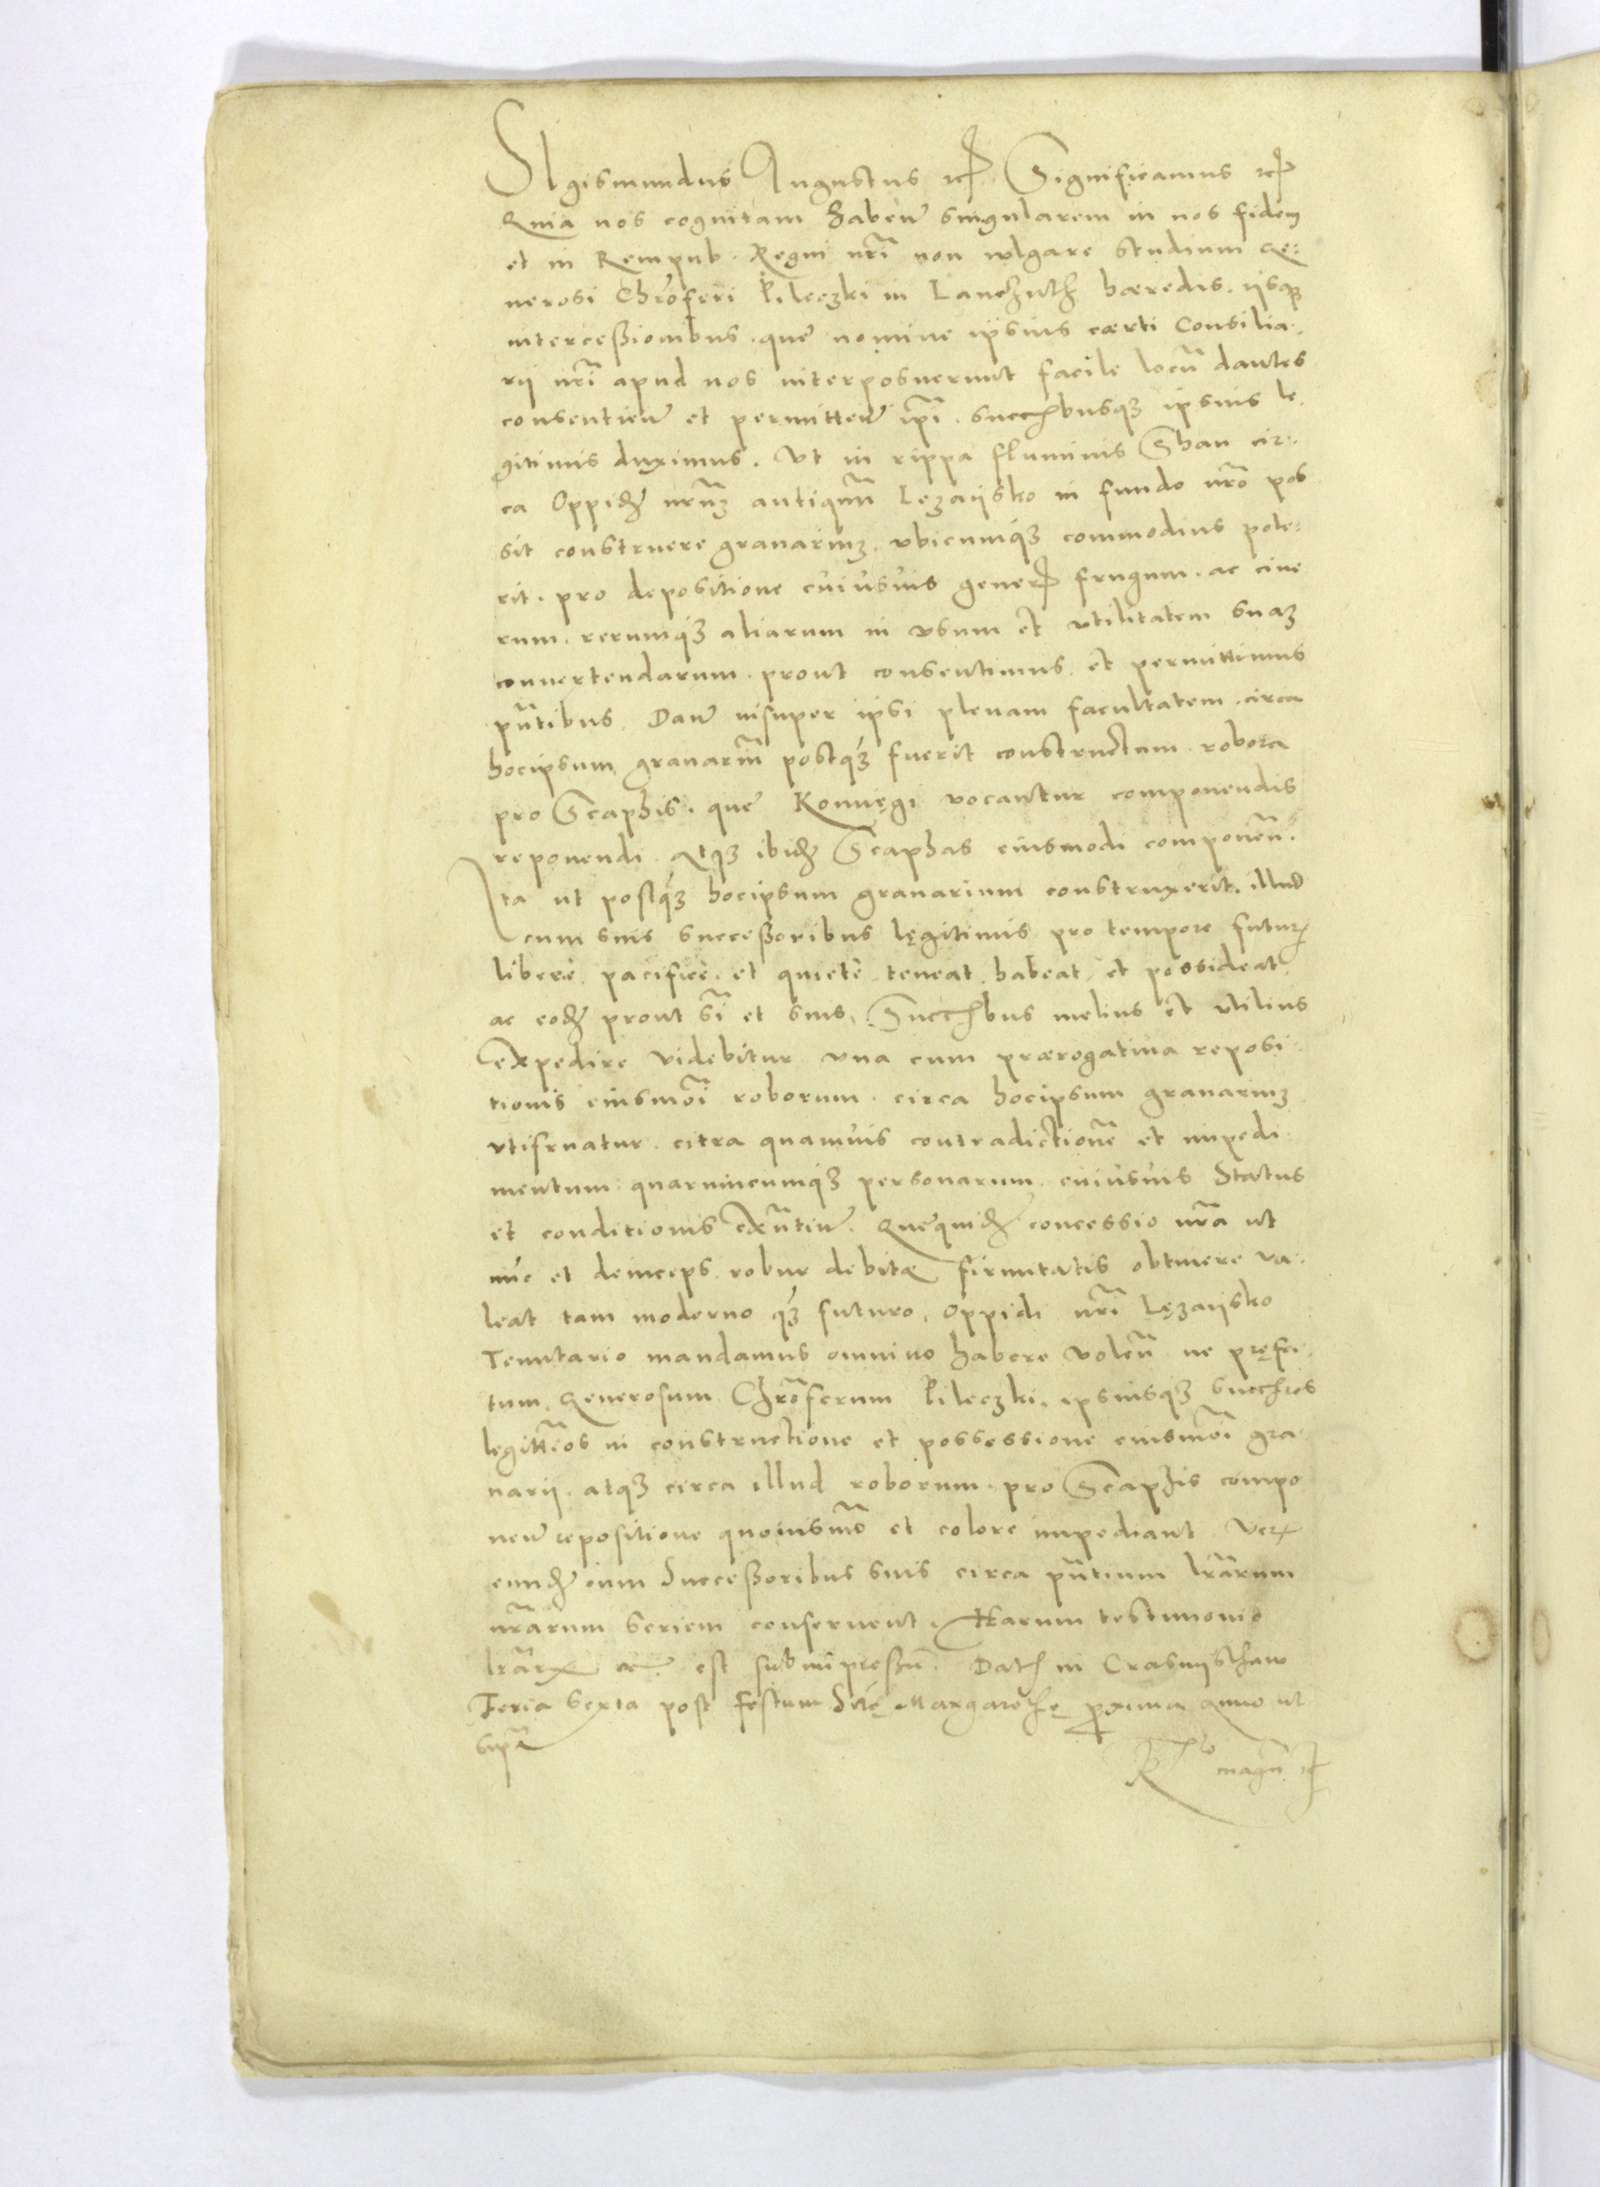 SIgismundus Augustus etc. Significamus etc.
Quia nos cognitam haben̄ singularem in nos fidem
et in Rempub. Regni nr̄i non wlgare studium Ge:
nerosi Chrõferi Pileczki in Lanczuth hæredis. ijsq3
intercessionibus. que nomine ipsius certi Consilia-
rij nr̄i apud nos interposuerunt facile locū dantes
consentien̄ et permitten̄ ip̄i. succ͠busq3 ipsius le
gitimis duximus. Vt in rippa fluminis Shan cir:
ca Oppid̄ nr̄um antiquū Lęzaijsko in fundo nr̄o pos
sit construere granarium. vbicumq3 commodius pote:
rit. pro depositione cuiusuis gener̄ frugum. ac cine
rum. rerumq3 aliarum in vsum et vtilitatem suam
conuertendarum. prout consentimus et permittimus
pn̄tibus. Dan̄ insuper ipsi plenam facultatem. circa
hocipsum granariū postq3 fuerit constructum. robora
pro Scaphis. que Komięgi vocantur componendis
reponendi. Atq3 ibid̄ Scaphas eiusmodi componen̄.
Ita ut postq3 hocipsum granarium construxerit. illud
cum suis successoribus lęgitimis pro tempore futur̄
liberè, pacificè. et quietè teneat. habeat et possideat
ac eod̄ prout si͠ et suis. Succ͠bus melius et vtilius
expedire videbitur vna cum prærogatiua reposi
tionis eiusmo͠i roborum. circa hocipsum granarium
vtifruatur. citra quamuis contradictionē et impedi
mentum quarumcumq3 personarum. cuiusuis Status
et conditionis exn̄tiū. Quequid̄ concessio nr̄a ut
nūc et deinceps robur debitæ firmitatis obtinere va-
leat tam moderno q3 futuro. Oppidi nr̄i Lęzaijsko
Tenutario mandamus omnino habere volen̄ ne pręfa-
tum. Generosum Chrõferum Pileczki. ipsiusq3 succ͠res
legitt̄mos in constructione et possessione eiusmo͠i gra
narij. atq3 circa illud roborum. pro Scaphis compo
nen̄ repositione quouismō et colore impediant. Ver̄
eund̄ cum Successoribus suis circa pn̄tium lr̄arum
nr̄arum seriem conseruent. Harum testimonio
lr̄ar̄ etc. est subimpressū. Dat̄ in Crasnijsthaw
Feria sexta post festum Sctę. Margarethę proxima anno ut
supra
Rlo magci etc.